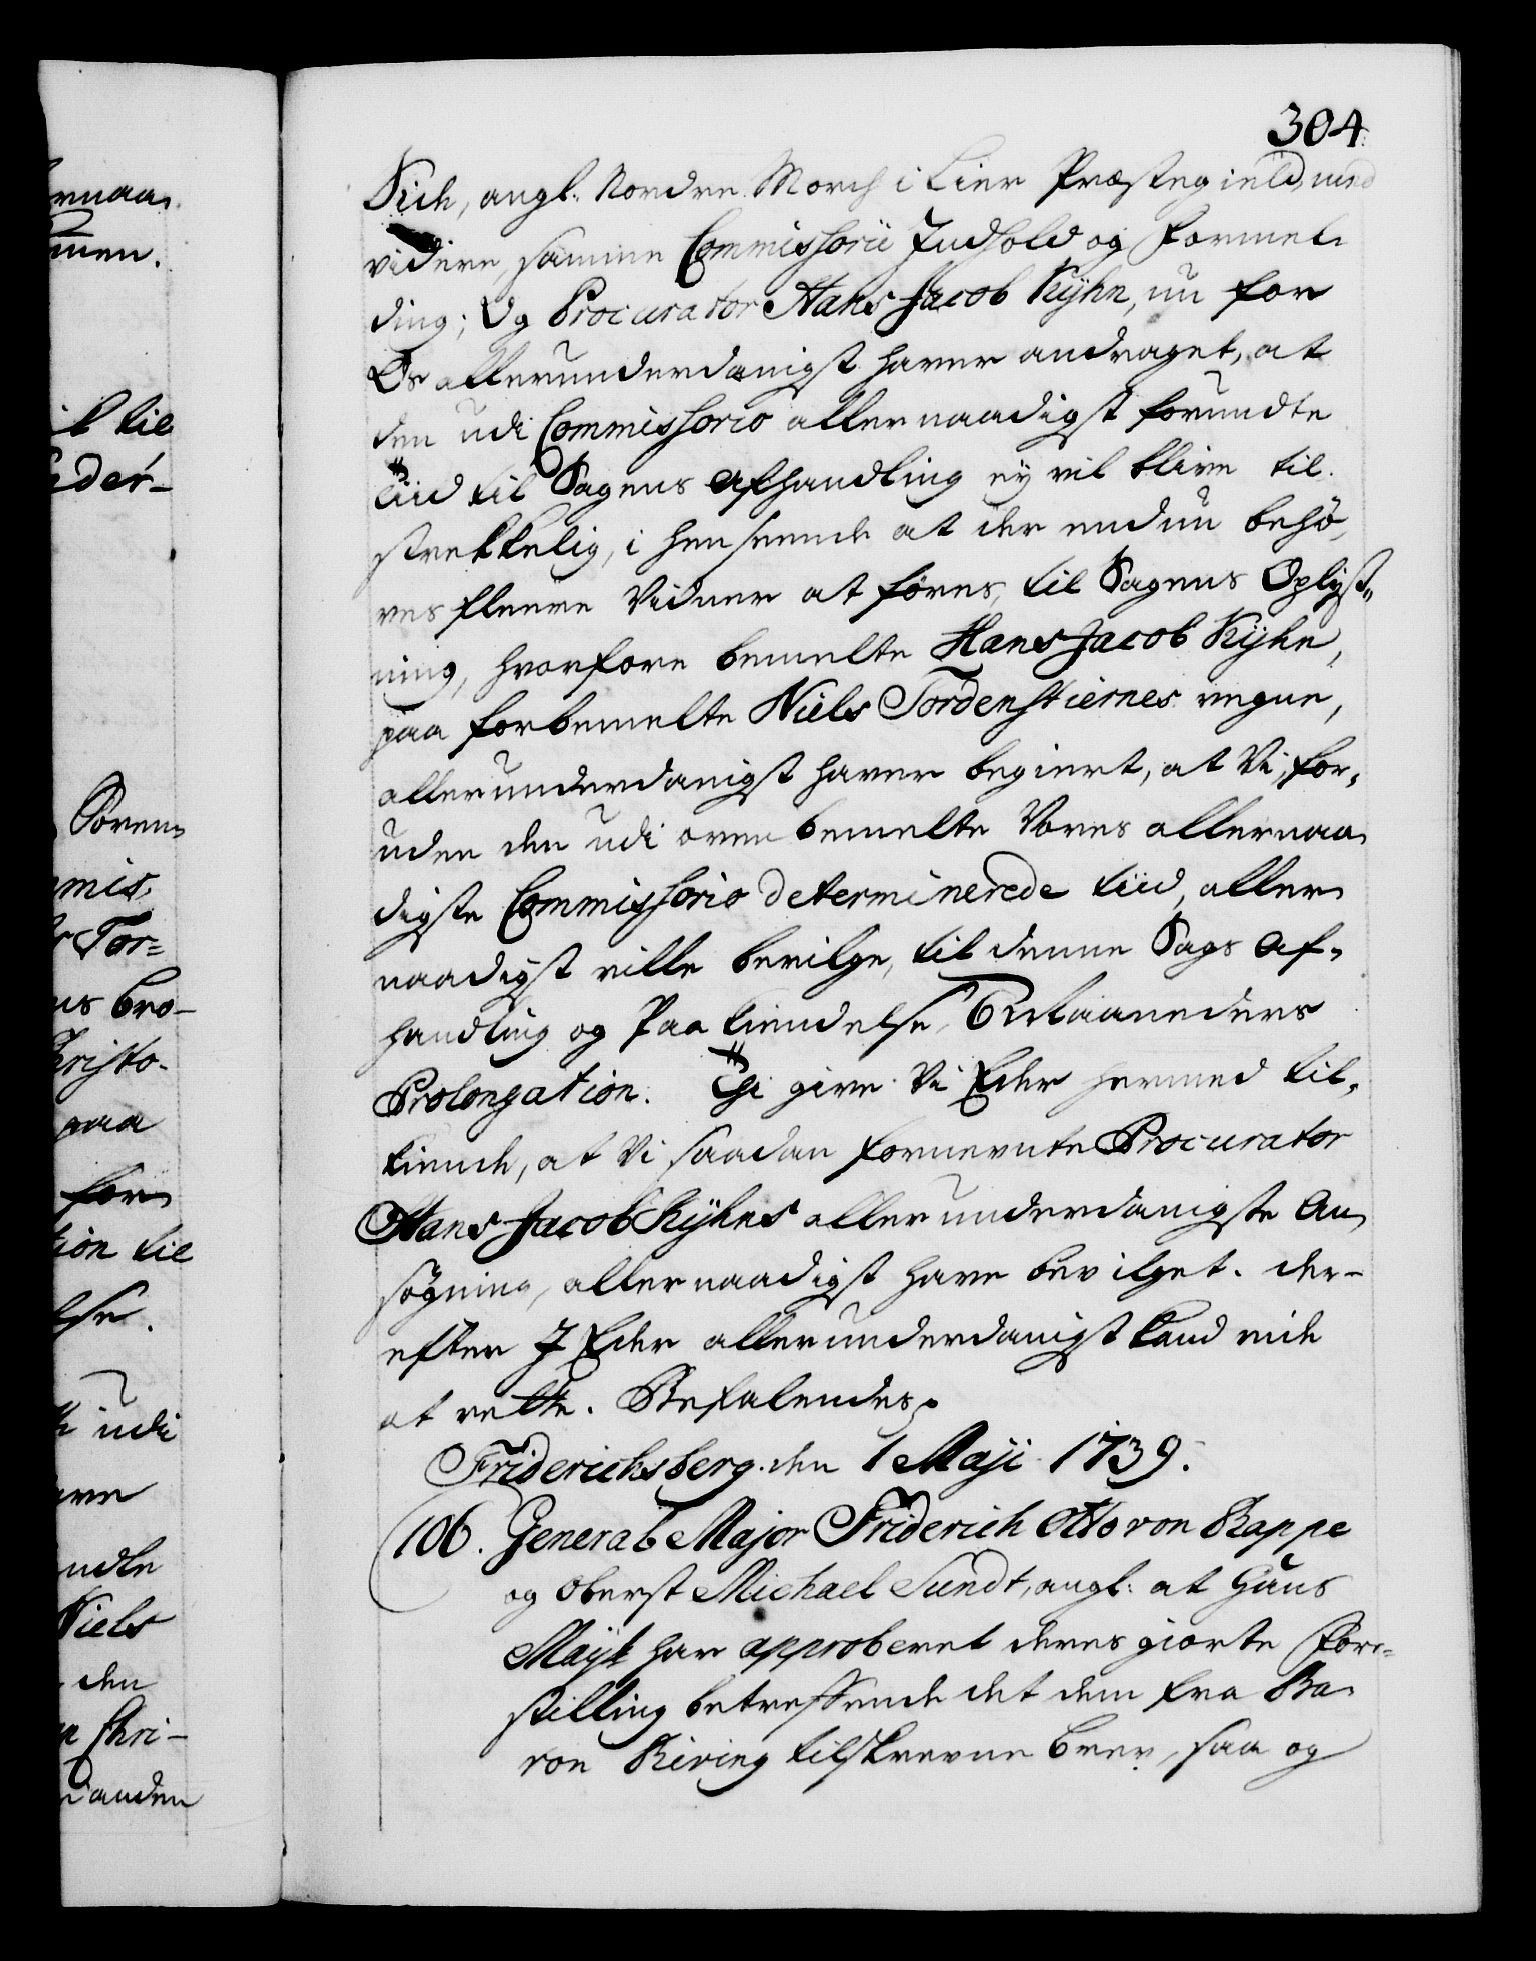 304.
Vich, angl: Nordre Morch i Lier Præstegield, med
videre, samme Commissorii Indhold og Formel-
ding; Og Procurator Hans Jacob Kyhn, nu for
Os allerunderdanigst haver andraget, at
den udi Commissorio allernaadigst forundte
Tiid til Sagens Afhandling ey vil blive til-
strekkelig, i henseende at der endnu behø-
ves fleere Vidner at føres, til Sagens Oplys-
ning, hvorfore bemelte Hans Jacob Kyhn,
paa forbemelte Niels Tordenstiernes vegne,
allerunderdanigst haver begiert, at Vi, for-
uden den udi ovenbemelte Vores allernaa-
digste Commissorio determinerede tiid, aller-
naadigst ville bevilge, til denne Sags Af-
handling og Paakiendelse, 6 Maaneders
Prolongation. Thi give Vi Eder hermed til-
kiende, at Vi saadan fornevnte Procurator
Hans Jacob Kyhns allerunderdanigste An-
søgning, allernaadigst have bevilget. Der-
efter I Eder allerunderdanigst kand vide
at rette. Befalendes.
Friderichsberg den 1 Maji 1739.
106. General Major Friderich Otto von Rappe
og Oberst Michael Sundt, angl: at Hans
Mayt har approberet deres giorte Fore-
stilling betreffende det dem fra Ba-
ron Riving tilskrevne brev, saa og
ernaa-
men.
il til
eder-
Søren
mis-
Tor=
bro-
hristo-
paa
for
tion til
lse.
udi
ndle
Niels
den
Chri-
anden